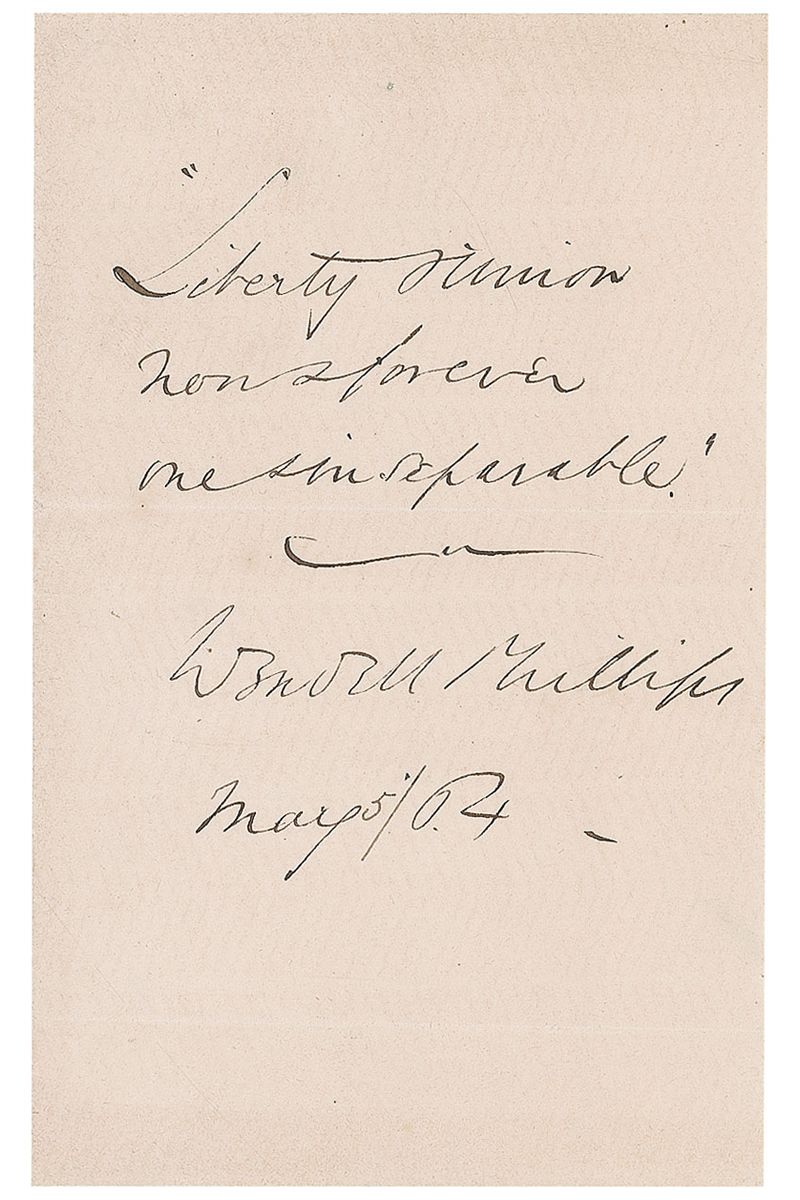 "Liberty & Union
now & forever
one & inseparable."
Wendell Phillips
May 5/64